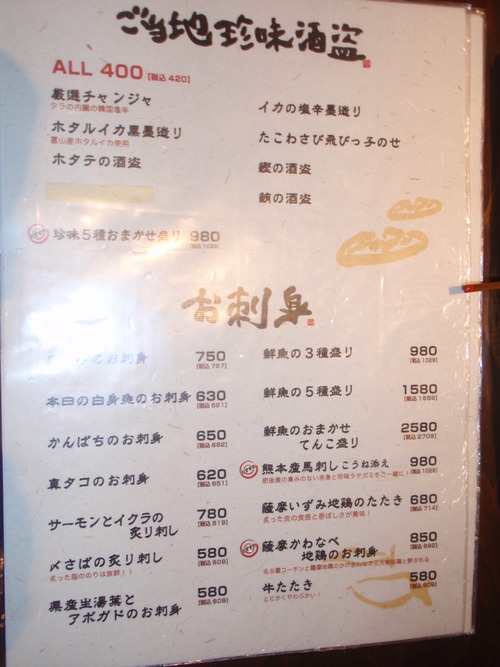 ご当地珍味酒盗
ALL 400 [税込 420]
厳選チャンジャ
タラの内臓の韓国塩辛
ホタルイカ黒墨造り
富山産ホタルイカ使用
ホタテの酒盗
イカの塩辛墨造り
たこわさび飛びっ子のせ
鰹の酒盗
の酒盗
珍味5種おまかせ盛り 980
[税込 1029]
お刺身
お刺身 750
[税込 787]
本日の白身魚のお刺身 630
[税込 661]
かんぱちのお刺身 650
[税込 682]
真タコのお刺身 620
[税込 651]
サーモンとイクラの
炙り刺し 780
[税込 819]
〆さばの炙り刺し 580
[税込 609]
炙った脂ののりは抜群!!
県産生湯葉と
アボガドのお刺身 580
[税込 609]
鮮魚の3種盛り 980
[税込 1029]
鮮魚の5種盛り 1580
[税込 1659]
鮮魚のおまかせ
てんこ盛り 2580
[税込 2709]
熊本産馬刺しこうね添え 980
[税込 1029]
肥後産の臭みのない赤身と珍味タテガミをご一緒に!
薩摩いずみ地鶏のたたき 680
[税込 714]
炙った皮の食感と香ばしさが美味!
薩摩かわなべ
地鶏のお刺身 850
[税込 892]
牛たたき 580
[税込 609]
とにかくやわらかい!